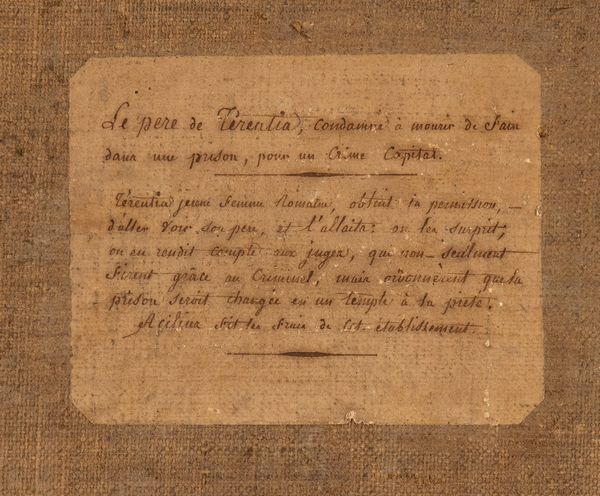 Le pere de Térentia, condamné à mourir de faim
dans une prison, pour un Crime Capital.
Térentia jeune femme Romaine, obtint la permission,
d'aller voir son pere, et l'allaita: on les surprit,
on en rendit compte aux juges, qui non-seulment
firent grâce au Criminel, mais ordonnèrent que la
prison seroit changée en un temple à la pieté.
Acilius fit les frais de cet établissement.